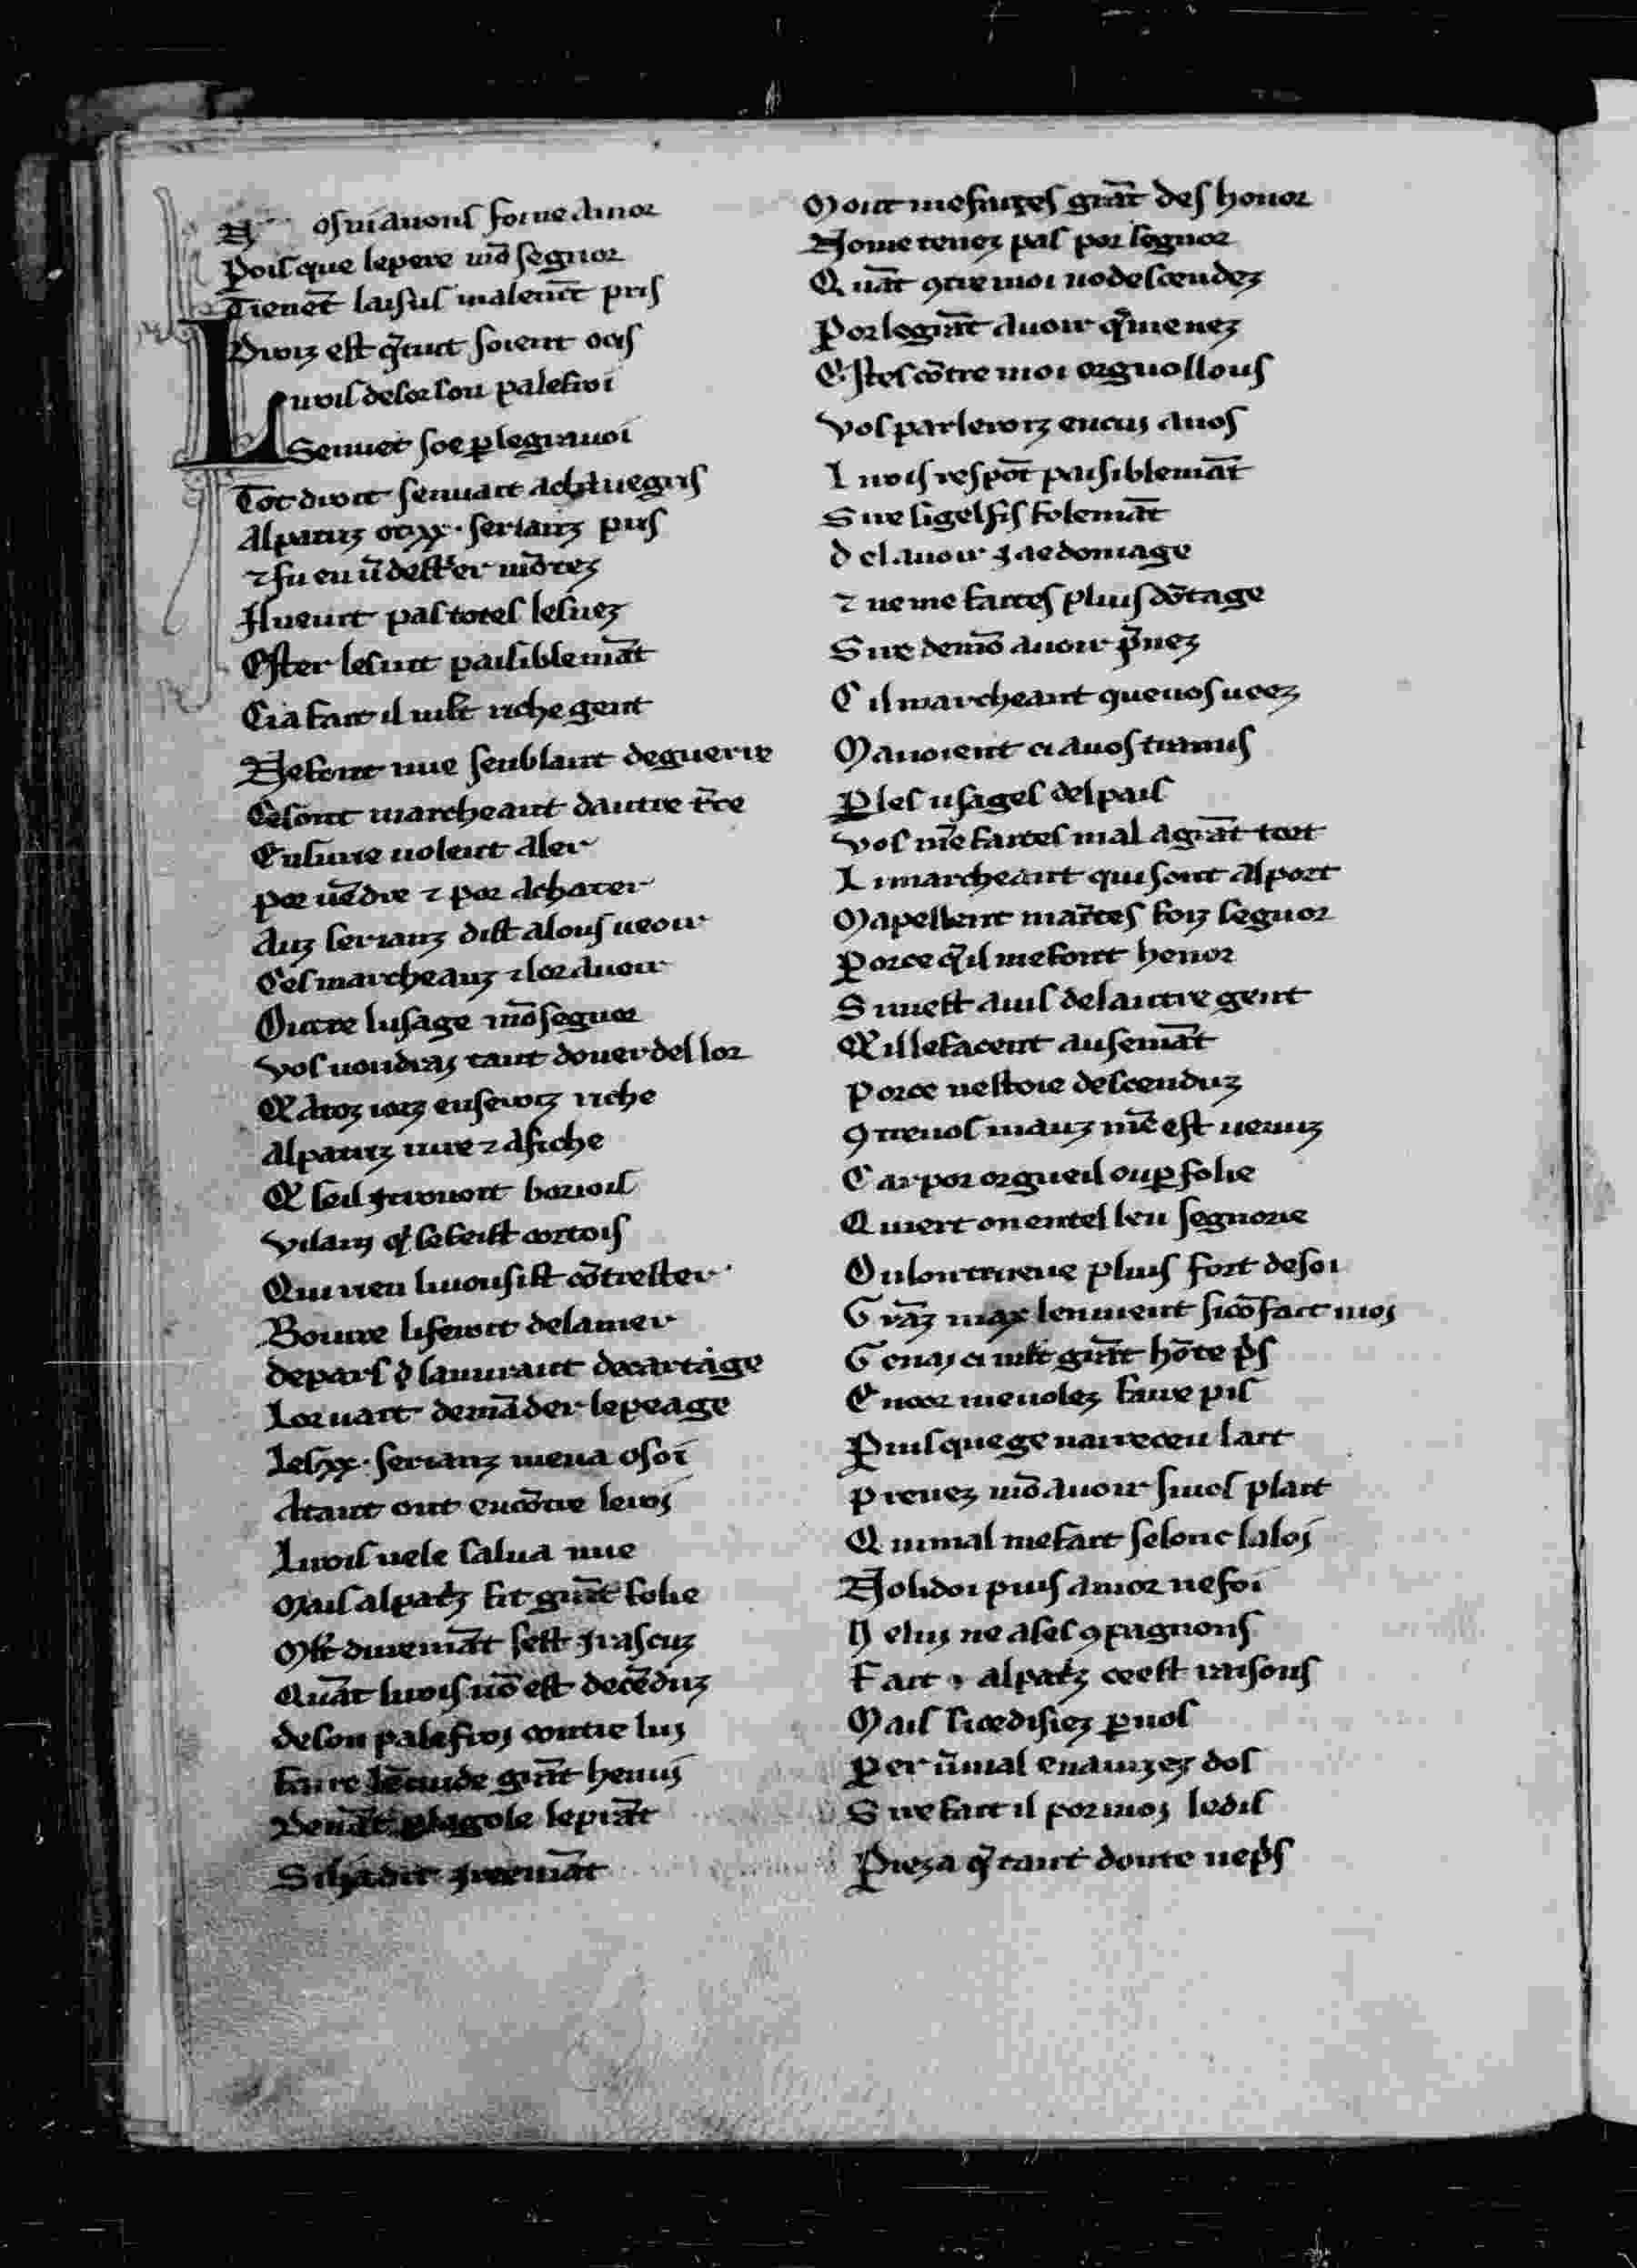 N osni auons forne amor
Pois que le pere mō segnor
Tienēt laisus maleuāt pris
Droiz est q̃ tuit soient ocis
L iurois desor son palefroi
Sen uet soe p le grauoi
Tot droit sen uait a chiuegris
Alpatriz ot .xx. serianz pris
⁊ fu en ũ destrer mōtez
Il neurt pas totes lesuez
Ester les uit paisiblemāt
Cia fait il mlt riche gent
Ne font mie senblant de guerre
Ce sont marcheant dautre t̃re
En surie uolent aler
por uēdre ⁊ por achater
Auz serianz dist alons ueoir
Ces marcheanz ⁊ lor auoir
Outre lusage mō segnor
Vos uoudraz tant doner del lor
Q̃ a toz iorz en seroiz riche
Alpatriz iure ⁊ afiche
Q̃ seil i trouoit boriois
Vilain q̃ se feist cortois
Qui rien li uousist cōtrester
Boiure li feroit de la mer
de pars  lamirant de cartage
Lor uait demāder le peage
Les .xx. serianz mena o soi
Atant ont encōtre le roi
Liurois nele salua mie
Mais alpatᵢz fit grāt folie
Mlt duremāt sest irascuz
Quāt liurois nō est decēduz
de son palefroi contre lui
faire lē cuide grāt henui
Deuāt  le prāt
Si li a dit ireemāt
Moit me faites grāt des honor
No me tenez pas por segnor
Quāt ꝯtre moi no descendez
Por le grāt auoir q̃ menez
Estes cōtre moi orguollous
Vos parleroiz encui a uos
Liurois respōt paisiblemāt
Sire si gel fis folemāt
del auoir i ae domage
⁊ ne me faites pluis dōtage
Sire de mō auoir p̃nez
Cil marcheant que uos ueez
Mauoient ci a uos tramis
P les usages del pais
Vos mē faites mal a grāt tort
Li marcheant qui sont al port
Mapellent maītes foiz segnor
Por ce q̃l me font henor
Si mest auis de lautre gent
Q̃ il le facent ausemāt
Por ce nestoie descenduz
ꝯtre uos mauz mē est uenuz
Car por orgueil ou p folie
Quiert on en tel leu segnorie
Ou lon trueue pluis fort de soi
Grāz max len uient si cō fait moi
Gen ai ci mlt grāt hōte p̃s
Encor me uolez faire pis
Puis que ge nai receu lait
Prenez mō auoir si uos plait
Qui mal me fait selonc la loi
No li doi puis amor ne foi
Ne lui ne a ses ꝯpagnons
Fait  alpatᵢz ce est raisons
Mais si ce disiez p uos
Per ũ mal en auriez dos
Sire fait il por moi le dis
Pieza q̃ tant doute ne p̃s